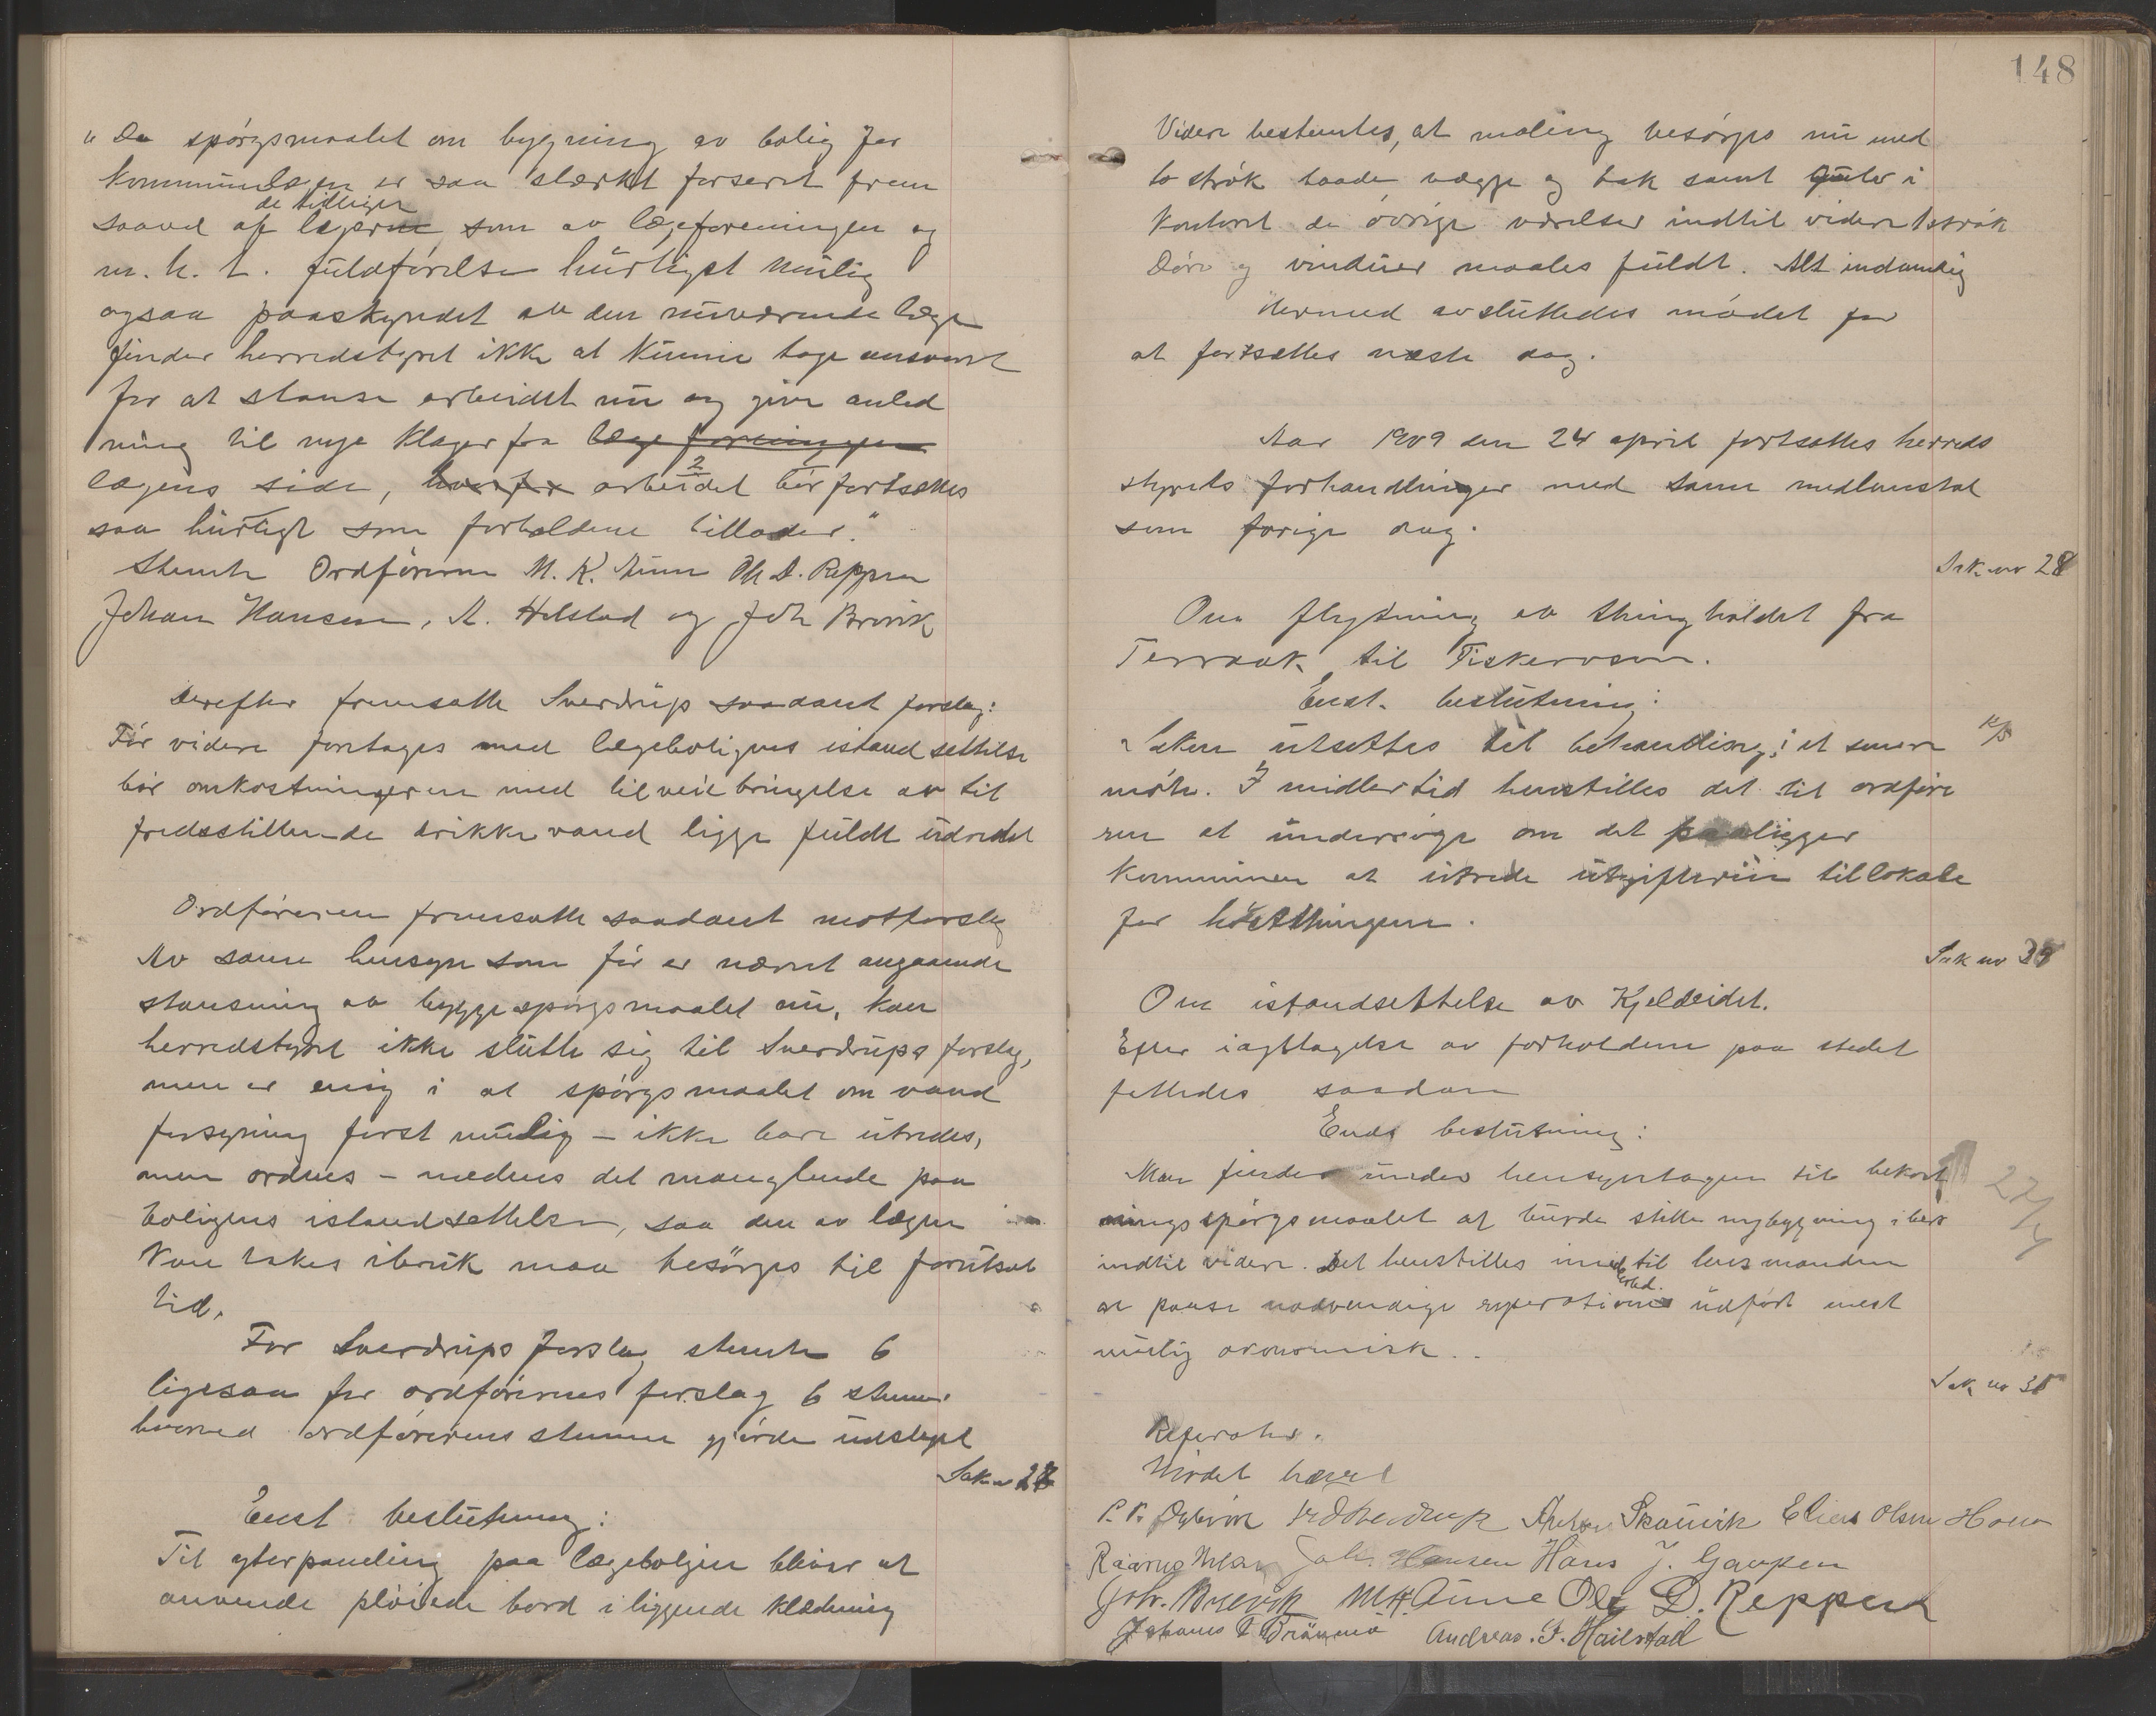 "Da spörgsmaalet om bygning av bolig for
kommunelægen er saa stærkt forseret frem
de tidligere
saavel af lægerne, som av lægeforeningen og
m. h. t. fuldförelse hurtigst mulig
ogsaa paaskyndet av den nuværende læge
finder herredstyret ikke at kunne tage ansvaret
for at stanse arbeidet nu og give anled
ning til nye klager fra lægeforeningen
2
lægens side, hvorfor arbeidet bör fortsættes
saa hurtigt som forholdene tillader."
Stemte Ordföreren M. K. Aune Ole D. Reppen
Johan Hansen, A. Helstad og Joh Brevik
Derefter fremsatte Sverdrup saadant forslag:
För videre foretages med lægeboligens istandsettelse
bör omkostningerne med tilveiebringelse av til
fredsstillende drikkevand ligge fuldt udredet
Ordföreren fremsatte saadant motforslag
Av samme hensyn som för er nævnt angaaende
stansning av byggespörgsmaalet nu, kan
herredstyret ikke slutte sig til Sverdrups forslag,
men er enig i at spörgsmaalet om vand
forsyning först mulig - ikke bare utredes,
men ordnes - medens det manglende paa
boligens istandsettelse, saa den av lægen
kan takes ibruk maa besörges til forutsat
tid.
For Sverdrups forslag stemte 6
ligesaa for ordförerens forslag 6 stemmer
hvorved ordförerens stemme gjorde udslaget
Sak nr 27
Enst beslutning:
Til yterpaneling paa lægeboligen bliver at
anvende plöiede bord i liggende klædning
148
Videre bestemtes, at maling besörges nu med
to strök baade vægge og tak samt gulv i
kontoret de övrige værelser indtil videre 1 strök
Döre og vinduer maales fuldt. Alt indvendig
Hermed avsluttedes mödet for
at fortsættes næste dag.
Aar 1909 den 24 april fortsattes herreds
styrets forhandlinger med samme medlemstal
som forige dag.
Sak nr 28
Om flytning av thingholdet fra
Terraak til Fiskerosen.
Enst. beslutning:
"Saken utsettes til behandling i et senere
möte. I midlertid henstilles det til ordföre
ren at undersöge om det paaligger
kommunen at utrede utgifterne til lokale
for höstthingene.
Sak nr 29
Om istandsettelse av Kjeldeidet.
Efter iagttagelse av forholdene paa stedet
fattedes saadan
Enst beslutning:
Man finder under hensyntagen til bekost
ningsspörgsmaalet at burde stille nybygning i bero
indtil videre. Det henstilles imid til lensmanden
lertid.
at paase nödvendige reperationer udfört mest
mulig ökonomisk.
Sak nr 30
Referater.
Mödet hævet
Anton Skauvik Elias Olsen Horn
Joh. Hansen Hans J. Gaupen
Joh. Brevik M K Aune Ole D. Reppen
Johannes Andreas. J. Heilstad